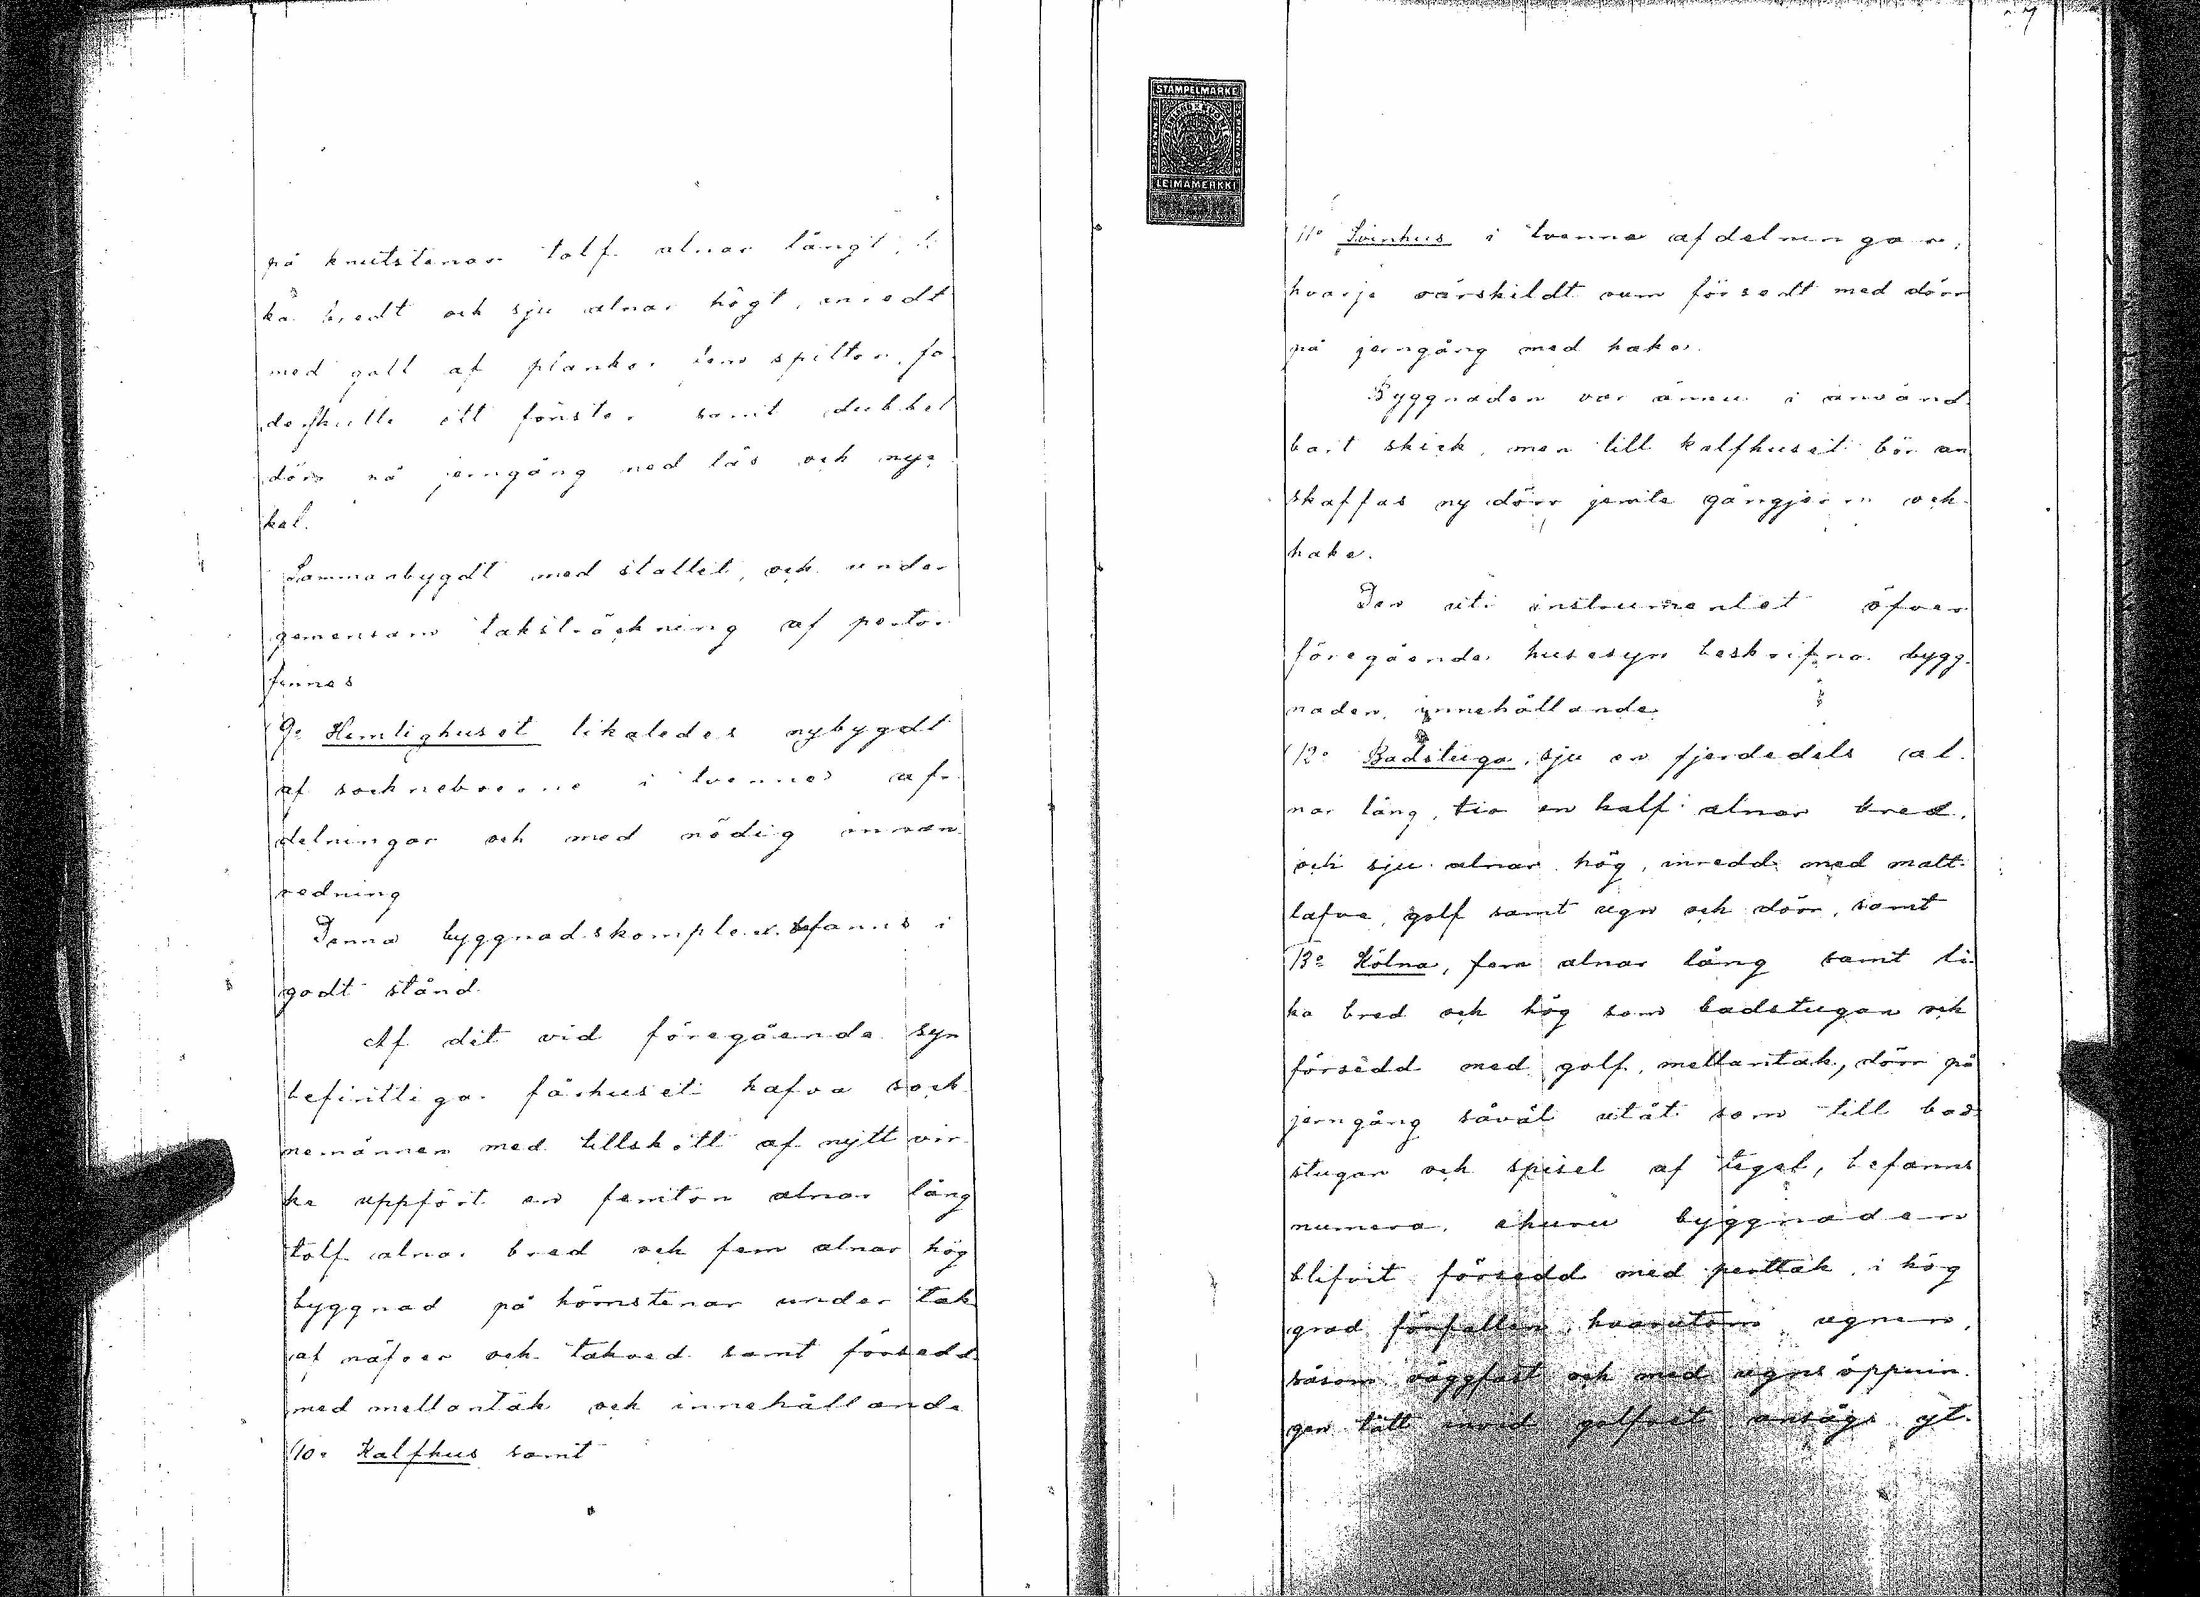 på knutstenar tolf alnar långt, li
ka bredt och sju alnar högt, inredt
med golf af plankor, fem spiltor, fo
derskulle ett fönster samt dubbel
dörr på jerngång med lås och nyc
kel.
Sammanbygdt med stallet, och under
gemensam taksträckning af pertor
finnes
9o Hemlighuset likaledes nybygdt
af sockneboerne i tvenne af-
delningar och med nödig innan
redning
Denna byggnadskomplex befanns i
godt stånd.
Af det vid föregående syn
befintliga fårhuset hafva sock
nemännen med tillskott af nytt vir-
ke uppfört en femton alnar lång
tolf alnar bred och fem alnar hög
byggnad på hörnstenar under tak
af näfver och takved samt försedd
med mellantak och innehållande
10o Kalfhus samt
STÄMPELMÄRKE
LEIMAMERKKI
7
11o Svinhus i tvenne afdelningar,
hvarje särskildt rum försedt med dörr
på jerngång med hake.
Byggnaden var ännu i använd
bart skick, men till kalfhuset bör an
skaffas ny dörr jemte gångjern och
hake.
Den uti instrumentet öfver
föregående husesyn beskrifna bygg-
naden, innehållande
12o Badstuga, sju en fjerdedels al-
nar lång, tio en half alnar bred,
och sju alnar hög, inredd med malt-
lafve, golf samt ugn och dörr, samt
13o Kölna, fem alnar lång samt li-
ka bred och hög som badstugan och
försedd med golf, mellantak, dörr på
jerngång såväl utåt som till bad
stugan och spisel af tegel, befanns
numera, ehuru byggnaden
blifvit försedd med perttak, i hög
grad förfallen, hvarutom ugnen,
såsom väggfast och med ugnsöppnin-
gen tätt invid golfvet ansågs yt-